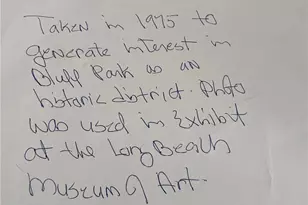 Taken in 1975 to
generate interest in
Bluff Park as an
historic district. Photo
was used in Exhibit
at the Long Beach
Museum of Art.